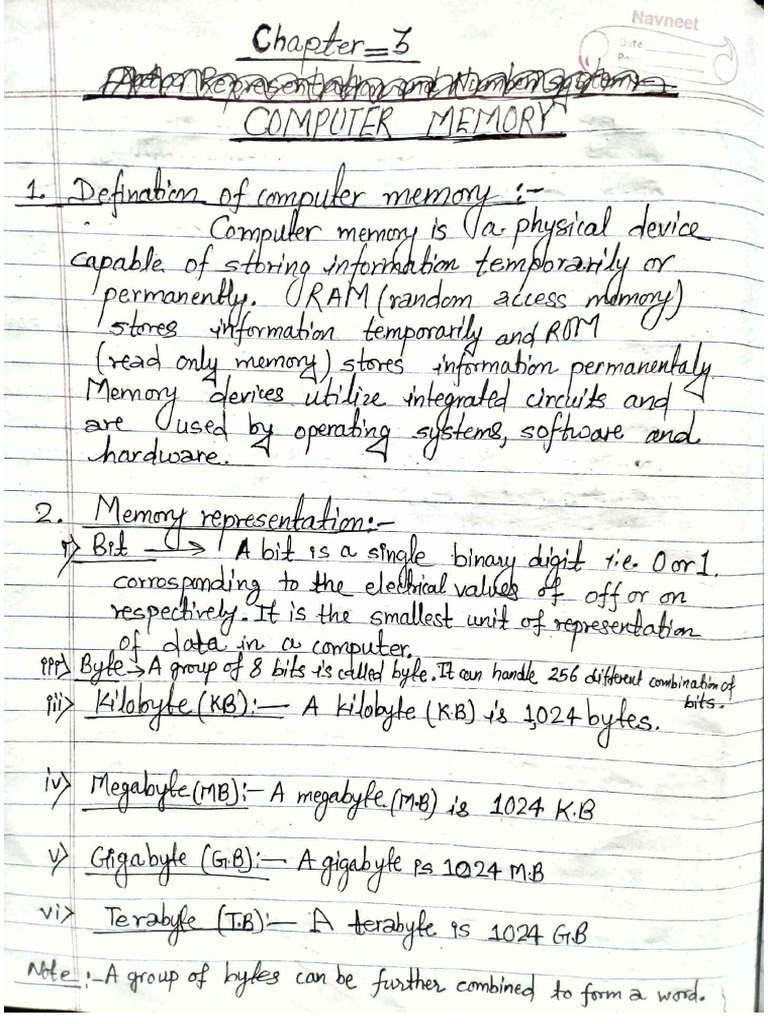 Navneet
Date
Chapter = 3
Representation and Number system
COMPUTER MEMORY
1. Defination of computer memory :-
Computer memory is a physical device
capable of storing information temporarily or
permanently. RAM (random access memory)
stores information temporarily and ROM
(read only memory) stores information permanentaly
Memory devices utilize integrated circuits and
are used by operating systems, software and
hardware.
2. Memory representation:-
i) Bit → A bit is a single binary digit i.e. 0 or 1.
corrosponding to the electrical values of off or on
respectively. It is the smallest unit of representation
of data in a computer.
iii) Byte → A group of 8 bits is called byte. It can handle 256 different combination of
bits.
iii) Kilobyte (KB):- A kilobyte (K.B) is 1,024 bytes.
iv) Megabyte (MB):- A megabyte (M.B) is 1024 K.B
v) Gigabyte (G.B):- A gigabyte is 1024 M.B
vi) Terabyte (T.B):- A terabyte is 1024 G.B
Note :- A group of bytes can be further combined to form a word.